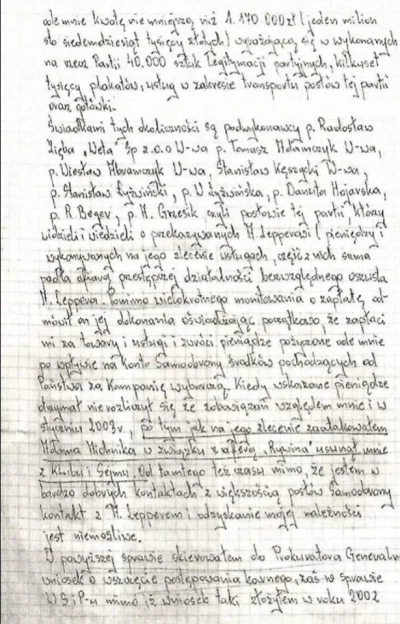 ode mnie kwotę nie mniejszą niż 1.170.000 zł (jeden milion
sto siedemdziesiąt tysięcy złotych) wyrażającą się w wykonanych
na rzecz Partii 40.000 sztuk Legitymacji partyjnych, kilkuset
tysięcy plakatów, usług w zakresie transportu posłów tej partii
oraz gotówki.
Świadkami tych okoliczności są podwykonawcy p. Radosław
Zięba "Weta" Sp z.o.o W-wa p. Tomasz Adamczyk W-wa,
p. Wiesław Abramczyk W-wa, Stanisław Kęszycki W-wa,
p. Stanisław Łyżwiński, p. W Łyżwińska, p. Danuta Hojarska,
p. R Beger, p. M. Grzesik czyli posłowie tej partii którzy
widzieli i wiedzieli o przekazywanych A Lepperowi (pieniędzy i
wykonywanych na jego zlecenie usługach, część z nich sama
padła ofiarą przestępczej działalności bezwzględnego oszusta
A. Leppera. Pomimo wielokrotnego monitowania o zapłatę od-
mówił on jej dokonania oświadczając początkowo, że zapłaci
mi za towary i usługi i zwróci pieniądze pożyczone ode mnie
po wpływie na konto Samoobrony środków pochodzących od
Państwa za Kampanię wyborczą. Kiedy wskazane pieniądze
otrzymał nie rozliczył się ze zobowiązań względem mnie i w
styczniu 2003r, po tym jak na jego zlecenie zaatakowałem
Adama Michnika w związku z aferą "Rywina" usunął mnie
z Klubu i Sejmu. Od tamtego też czasu mimo, że jestem w
bardzo dobrych kontaktach z większością posłów Samoobrony
kontakt z A. Lepperem i odzyskanie mojej należności
jest niemożliwe.
O powyższej sprawie skierowałem do Prokuratora Generaln
wniosek o wszczęcie postępowania karnego, zaś w sprawie
WSiP-u mimo iż wniosek taki złożyłem w roku 2002